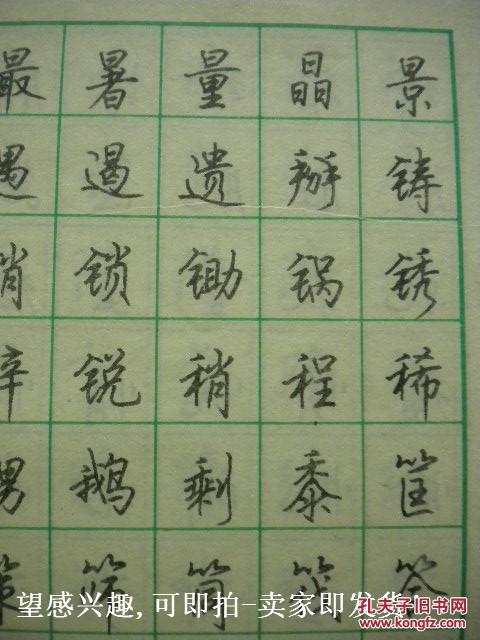 最 暑 量 晶 景
遇 遏 遗 铸
销 锁 锄 锅 锈
锌 锐 稍 程 稀
甥 鹅 剩 黍 筐
策 筛 答
望感兴趣,可即拍-卖家即发货!
孔夫子旧书网